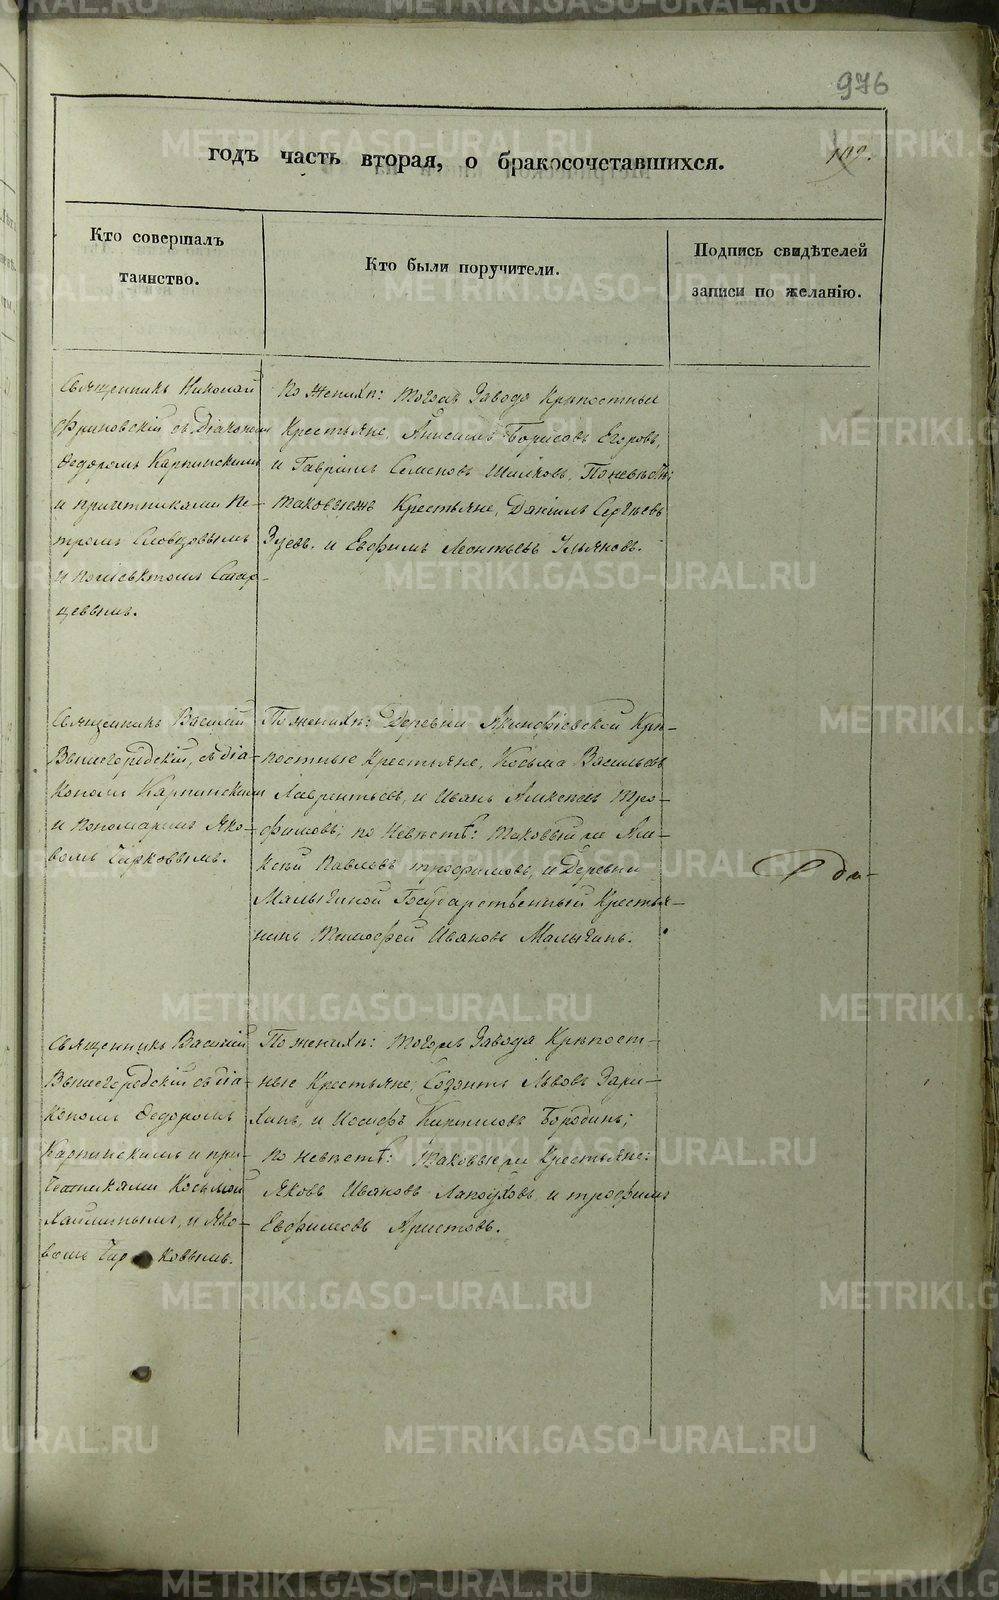 976
годъ часть вторая, о бракосочетавшихся.
102.
Кто совершалъ
таинство.
Кто были поручители.
Подпись свидѣтелей
записи по желанію.
Священникъ Николай
съ Діакономъ
Федоромъ Карпинскимъ
и причетниками Пе-
тромъ Словцовымъ
и Старцевымъ.
По женихѣ: тогожъ Завода Крѣпостные
Крестьяне, Анисимъ Борисовъ Егоровъ,
и Гавріилъ Семеновъ Шилковъ, По невѣстѣ:
таковыежъ Крестьяне, Даніилъ Сергѣевъ
Зуевъ, и Евфимъ Леонтьевъ Ульяновъ.
Священникъ Василій
Вышегородскій, съ діа-
кономъ Карпинскимъ
и пономаремъ Яко-
вомъ Чирковымъ.
По женихѣ: Деревни Акинфіевской Крѣ-
постные Крестьяне, Косьма Васильевъ
Лаврентьевъ, и Иванъ Алексѣевъ Тро-
фимовъ; по невѣстѣ: таковый же Але-
ксѣй Павловъ Трофимовъ, и Деревни
Малыгиной Государственный Крестья-
нинъ Тимофей Ивановъ Малыгинъ.
Священникъ Василій
Вышегородскій съ діа-
кономъ Федоромъ
Карпинскимъ и при-
четниками Косьмой
и Яко-
вомъ Чирковымъ.
По женихѣ: тогожъ Завода Крѣпост-
ные Крестьяне, Созонтъ Львовъ Зари-
хинъ, и Іосифъ Кириловъ Бородинъ;
по невѣстѣ: таковые же Крестьяне:
Яковъ Ивановъ Лапоуховъ, и Трофимъ
Евфимовъ Аристовъ.
METRIKI.GASO-URAL.RU